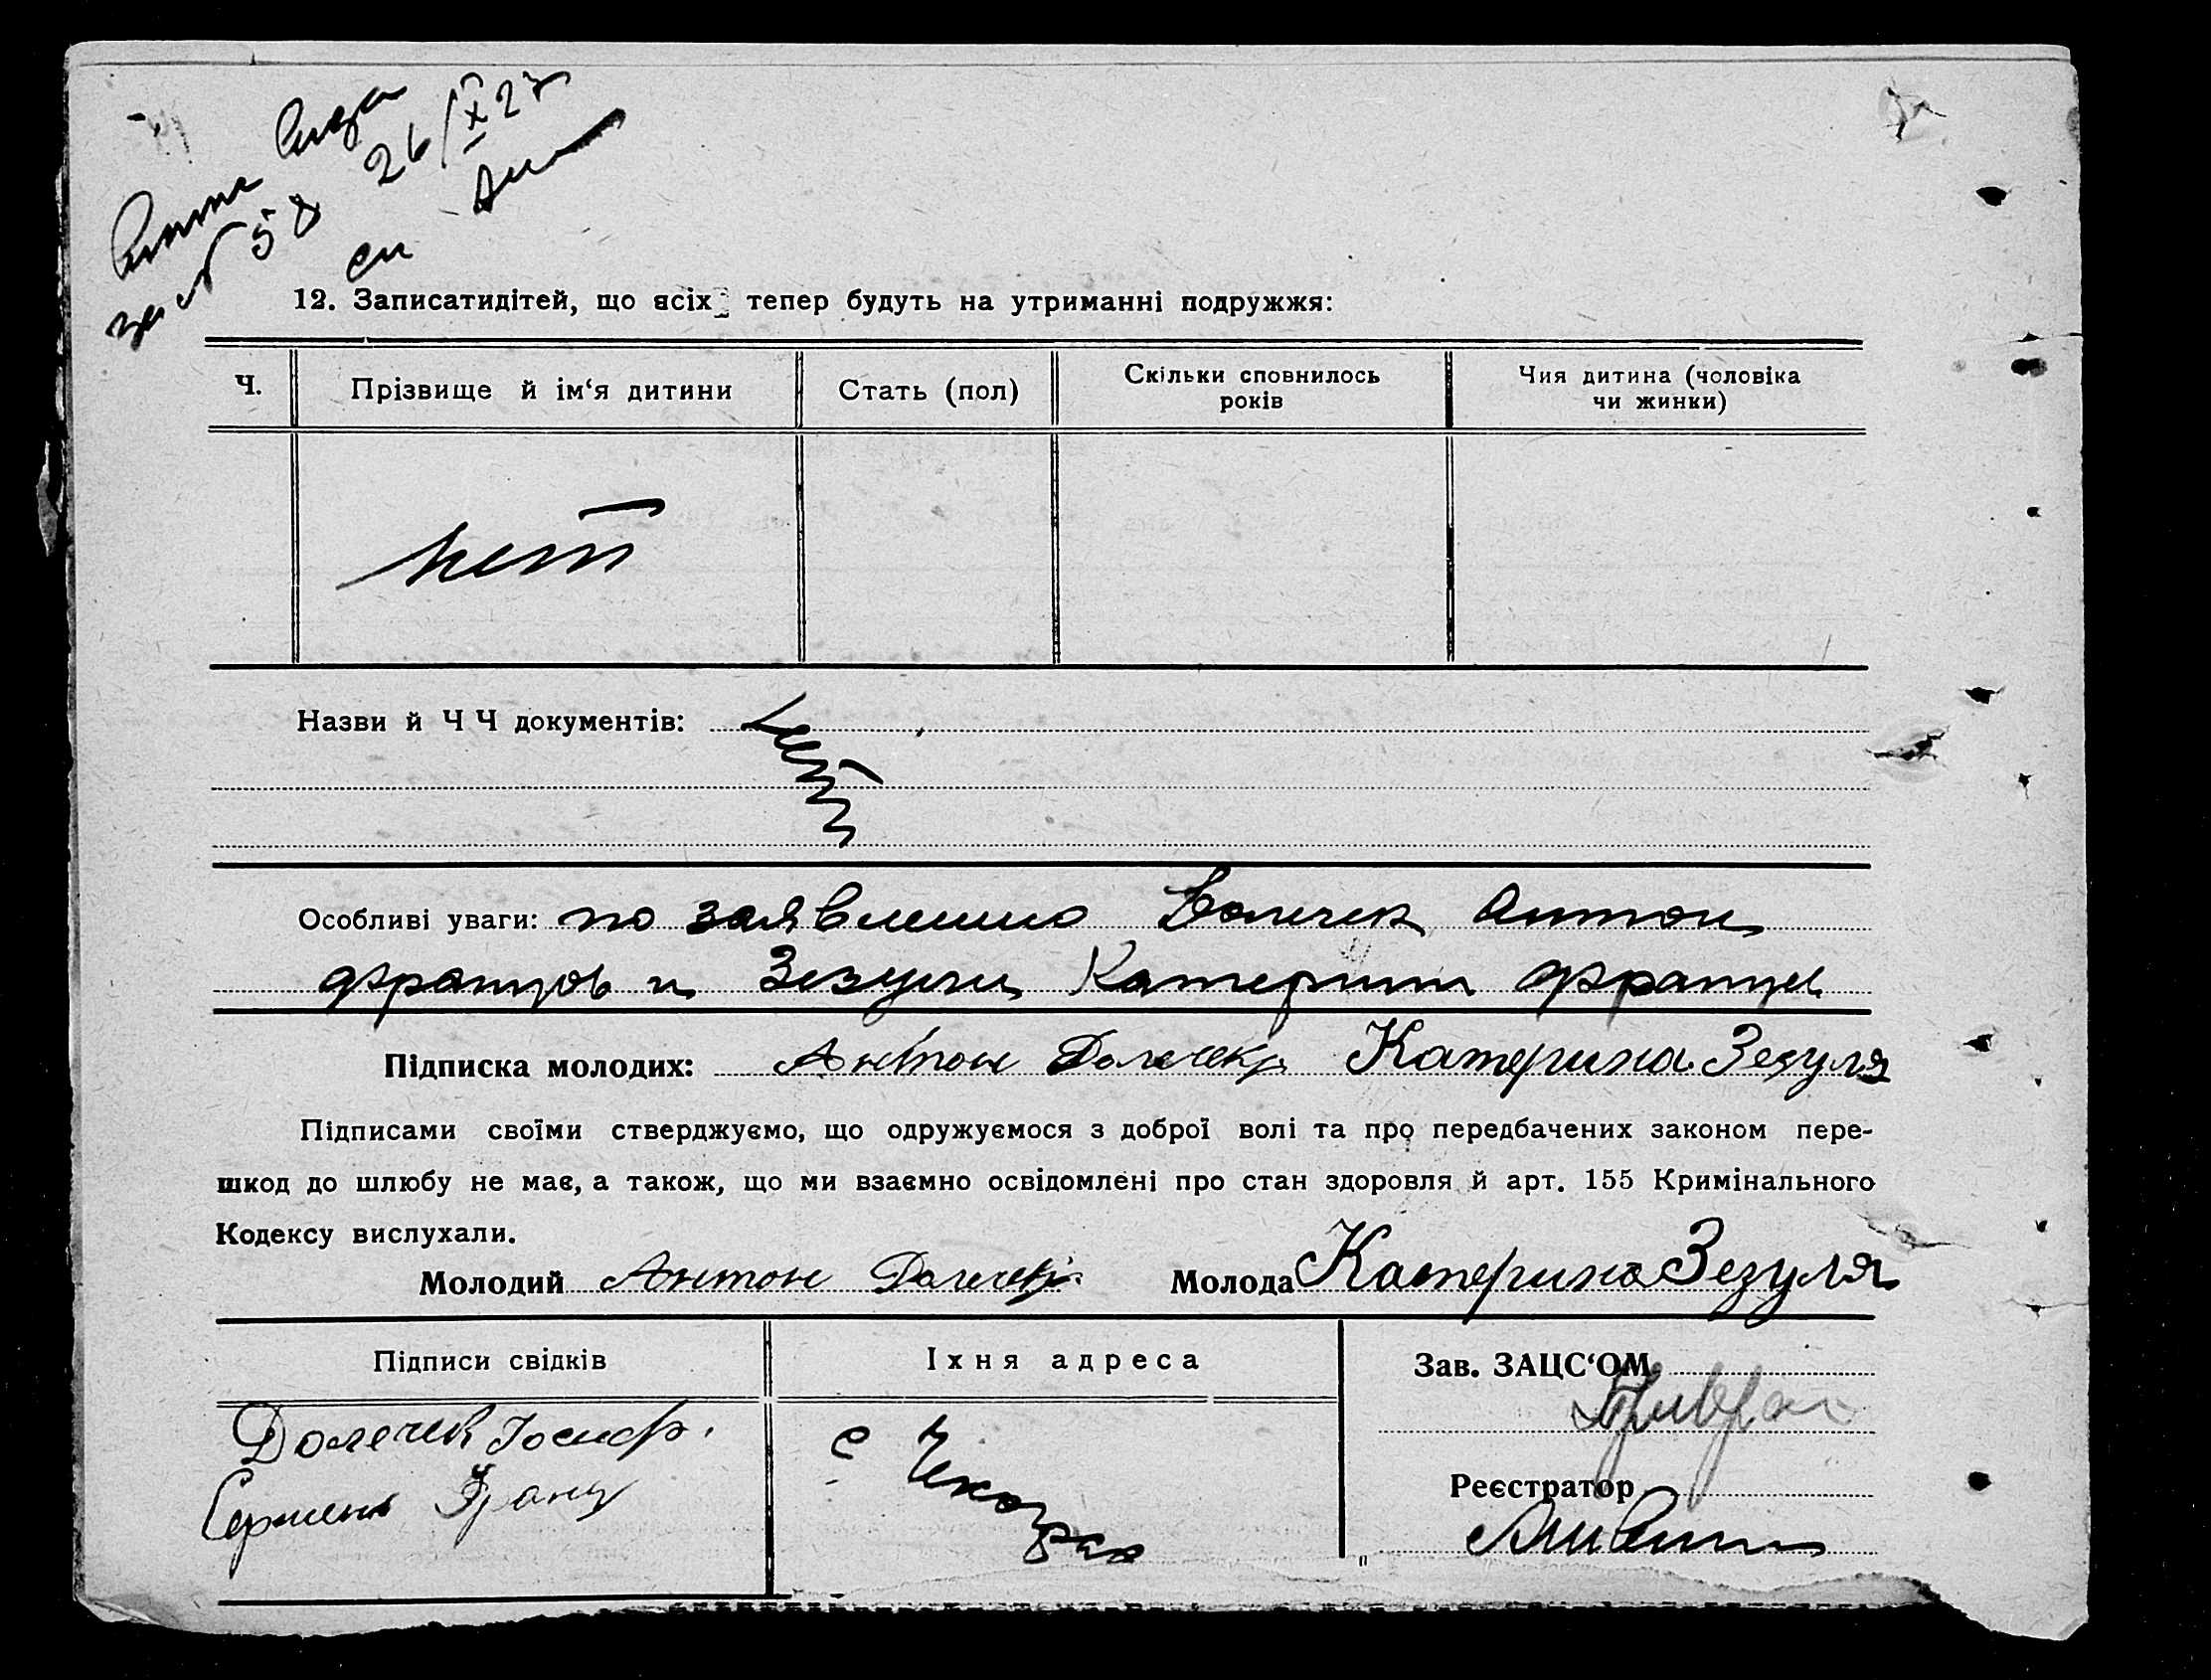 за № 58 26/IX 27
12. Записатидітей, що всіх тепер будуть на утриманні подружжя:
Ч.
Прізвище й ім‘я дитини
Стать (пол)
Скільки сповнилось
років
Чия дитина (чоловіка
чи жинки)
нет
Назви й Ч Ч документів: нет
Особливі уваги: по заявлению Долечек Антон
францов и Зезули Катерини францев.
Підписка молодих: Антон Долечекъ Катерина Зезуля
Підписами своїми стверджуємо, що одружуємося з доброї волі та про передбачених законом пере-
шкод до шлюбу не має, а також, що ми взаємно освідомлені про стан здоровля й арт. 155 Кримінального
Кодексу вислухали.
Молодий Антон Долечекъ Молода Катерина Зезуля
Підписи свідків
Їхня адреса
Зав. ЗАЦС‘ОМ
Долечек Іосиф.
с Чехоград
Франц
Реєстратор